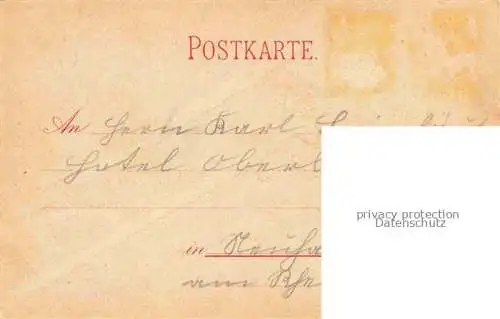 POSTKARTE.
An Herrn Karl
Hotel Oberl
in Neuha
am Rhe
privacy protection
Datenschutz